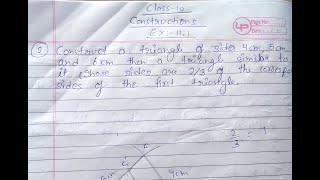 Class-10
Constructions
Ex:-11.1
② Construct a triangle of sides 4cm, 5cm
and 6cm then a triangle similar to
it whose sides are 2/3 of the corresp
sides of the first triangle.
2/3 =
C
C'
4cm